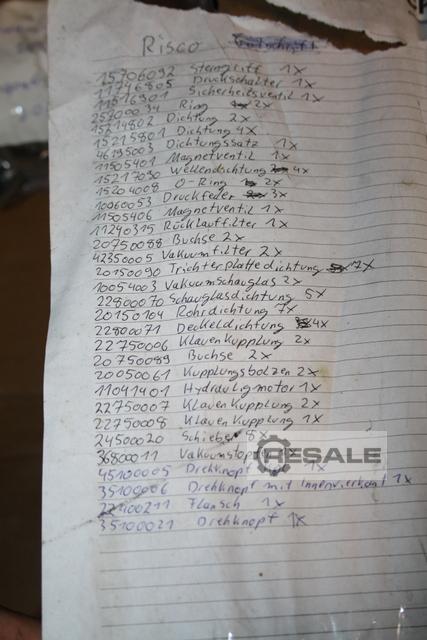 Risco
15706092 Sterngriff 1x
11746805 Druckschalter 1x
11516901 Sicherheitsventil 1x
25200034 Ring 2x
15214802 Dichtung 2x
15215801 Dichtung 4x
46195003 Dichtungssatz 1x
11505401 Magnetventil 1x
15217090 Wellendichtung 4x
15204008 O-Ring 2x
10060053 Druckfeder 3x
11505406 Magnetventil 1x
11240315 Rücklauffilter 1x
20750088 Buchse 2x
42350005 Vakuumfilter 2x
20150090 Trichterplattedichtung 7x
10054003 Vakuumschauglas 2x
22800070 Schauglasdichtung 5x
20150104 Rohrdichtung 7x
22800071 Deckeldichtung 4x
22750006 Klauen Kupplung 2x
20750089 Buchse 2x
20050061 Kupplungsbolzen 2x
11041401 Hydrauligmotor 1x
22750007 Klauen Kupplung 2x
22750008 Klauen Kupplung 1x
24500020 Schieber 8x
36800011
45100005 Drehknopf 1x
35100006 Drehknopf mit Innenvierkant 1x
Flansch 1x
35100021 Drehknopf 1x
RESALE